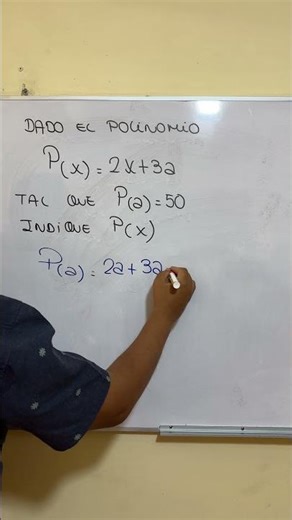 DADO EL POLINOMIO
P(x) = 2x+3a
TAL QUE P(a) = 50
INDIQUE P(x)
P(a) = 2a + 3a